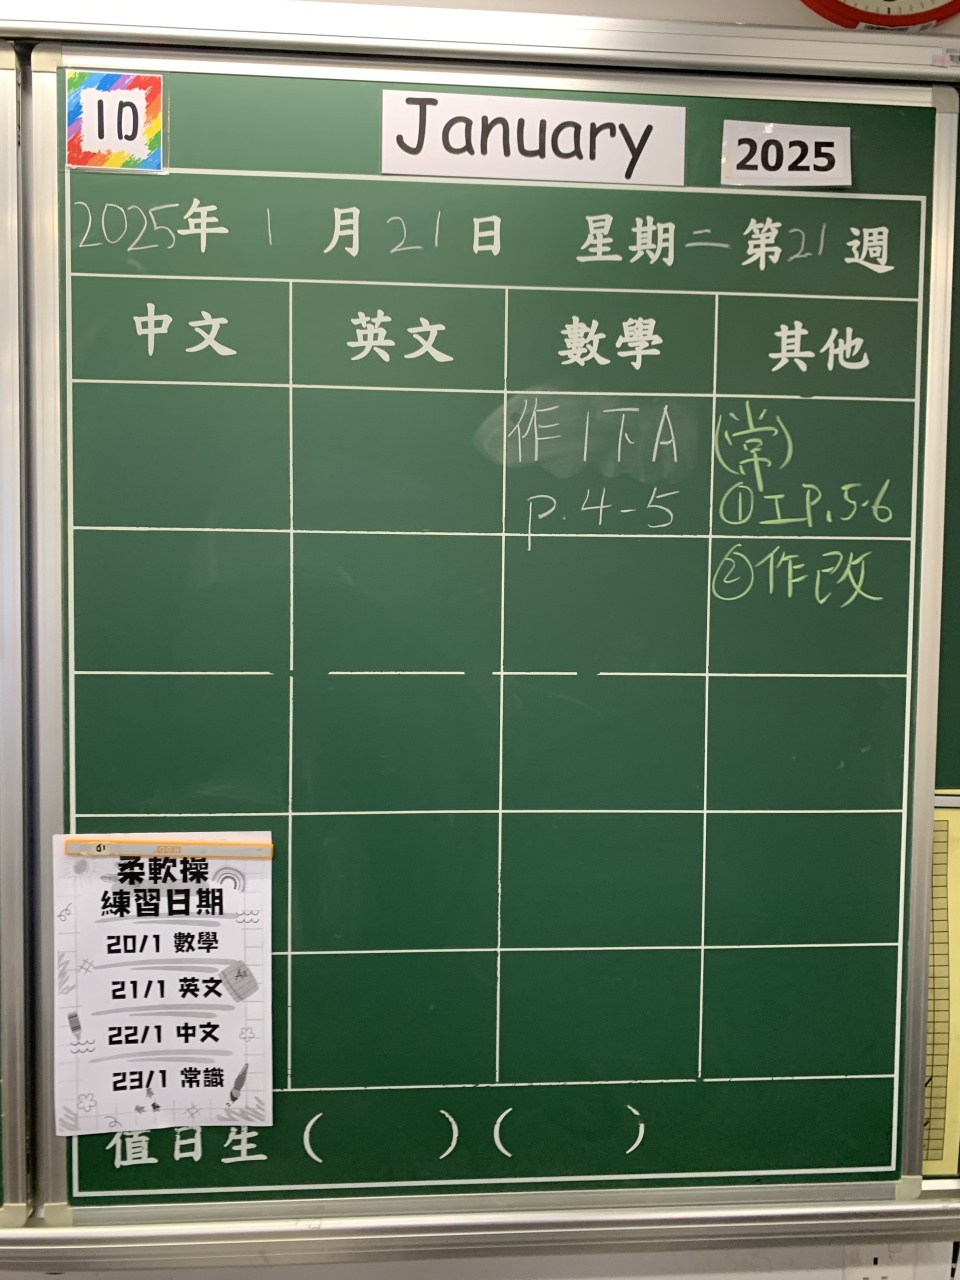 1D
January
2025
2025年1月21日 星期二第21週
中文 英文 數學 其他
作1下A
p.4-5
(常)
①工P.5-6
②作改
柔軟操
練習日期
20/1 數學
21/1 英文
22/1 中文
23/1 常識
值日生( )( )